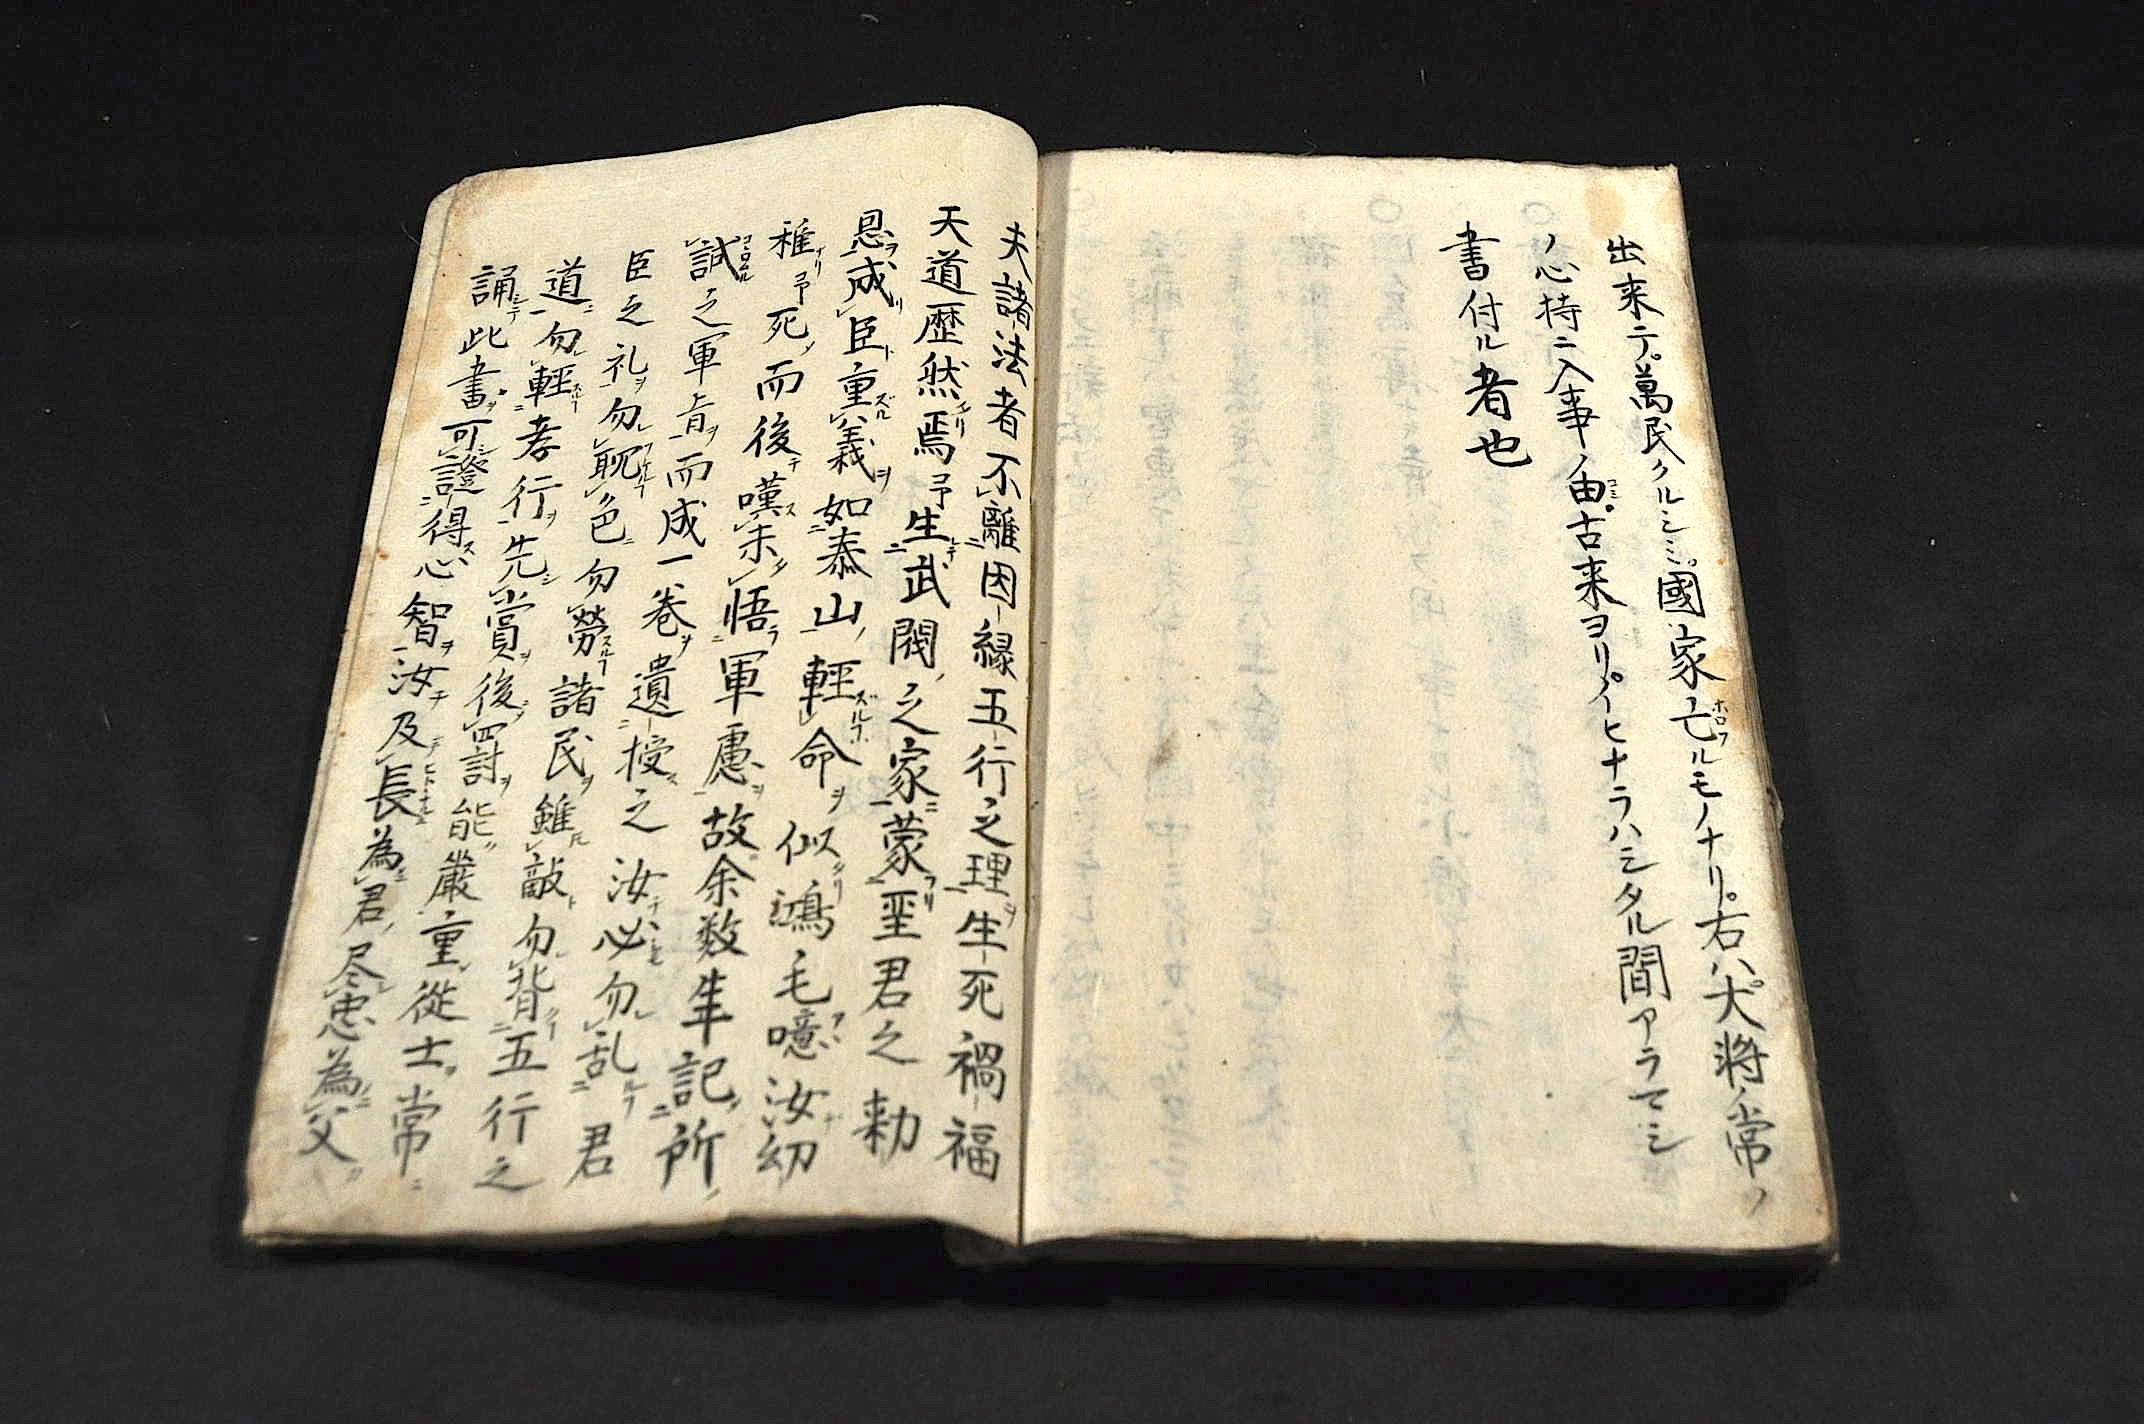 出来テ萬民クルシミ國家亡ルモノナリ右ハ大将ノ常ノ
ノ心持ニ入事ノ由古来ヨリイヒナラハシタル間アラマシ
書付ル者也
夫諸法者不離因縁五行之理生死禍福
天道歴然焉予生武閥之家蒙聖君之勅
恩成臣重義如泰山軽命似鴻毛噫汝幼
稚予死而後嘆未悟軍慮故余数年記所
試之軍旨而成一巻遺授之汝必勿乱君
臣之礼勿耽色勿労諸民雖敵勿背五行之
道勿軽孝行先賞後罰能厳重従士常
誦此書可證得心智汝及長為君尽忠為父